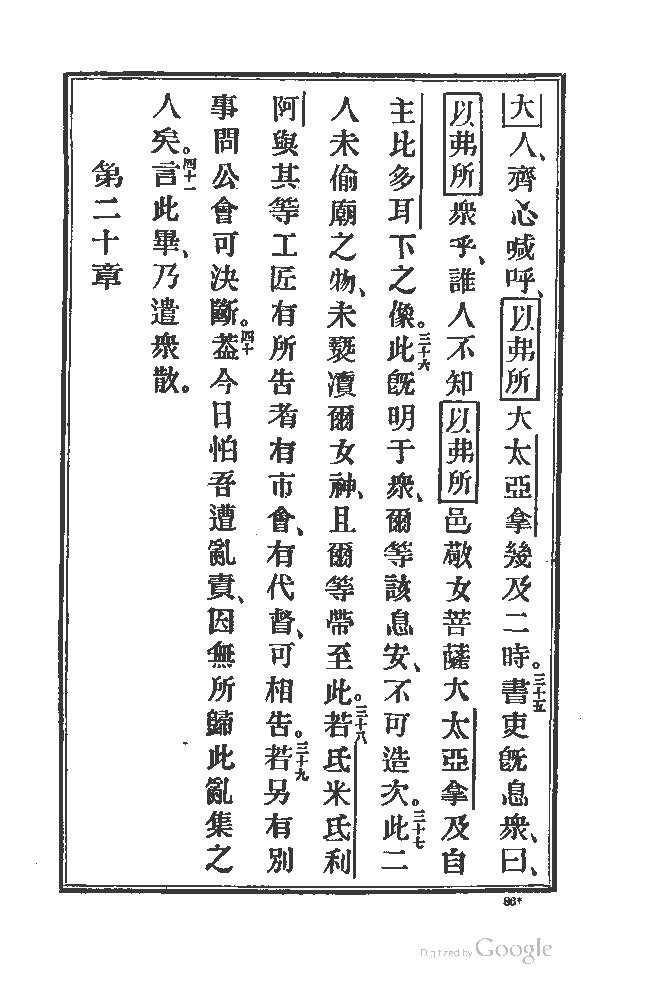 大人、齊心喊呼、以弗所大太亞拿幾及二時。三十五書吏旣息衆、曰、
以弗所衆乎、誰人不知以弗所邑敬女菩薩大太亞拿及自
主比多耳下之像。三十六此旣明于衆、爾等該息安、不可造次。三十七此二
人未偷廟之物、未褻瀆爾女神、且爾等帶至此。三十八若氐米氐利
阿與其等工匠有所告者有市會、有代督、可相告。三十九若另有別
事問公會可決斷。四十葢今日怕吾遭亂責、因無所歸此亂集之
人矣。四十一言此畢、乃遣衆散。
第二十章
86*
Digitized by Google